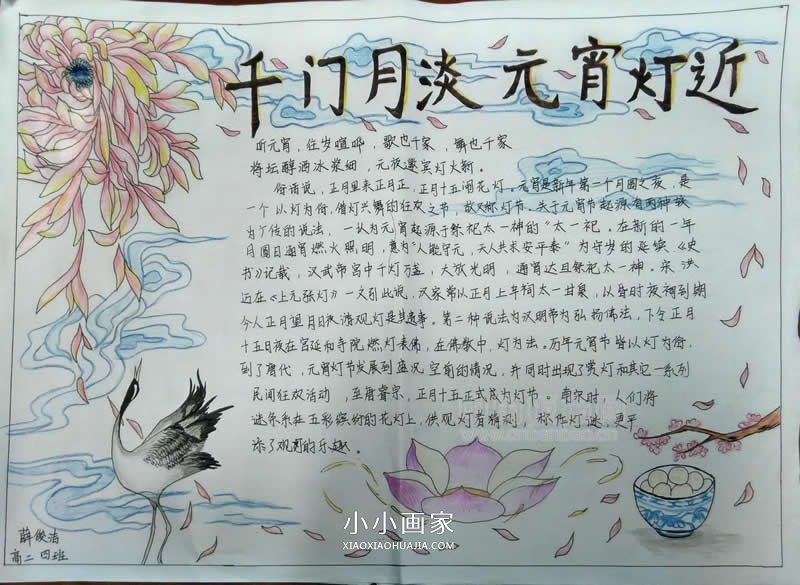 千门月淡 元宵灯近
听元宵，往岁喧哗，歌也千家，舞也千家
将坛醇酒冰浆细，元夜邀宾灯火新。
俗语说，正月里来正月正，正月十五闹花灯。元宵是新年第一个月圆之夜，是
一个以灯为俗，借灯兴舞的狂欢之节，故又称灯节。关于元宵节起源有两种较
为广传的说法，一认为元宵起源于祭祀太一神的“太一祀”。在新的一年
月圆日通宵燃火照明，意为“人能守元，天人共求安平泰”为守岁的延续《史
书》记载，汉武帝宫中千灯万盏，大放光明，通宵达旦祭祀太一神。宋 洪
迈在《上元张灯》一文引此说，汉家常以正月上辛祠太一甘泉，以昏时夜祠到明
今人正月望月日夜游观灯是其遗事。第二种说法为汉明帝为弘扬佛法，下令正月
十五日夜在宫廷和寺院燃灯表佛，在佛教中，灯为法。历年元宵节皆以灯为俗，
到了唐代，元宵灯节发展到盛况空前的情况，并同时出现了赏灯和其它一系列
民间狂欢活动，至唐睿宗，正月十五正式成为灯节。南宋时，人们将
谜条系在五彩缤纷的花灯上，供观灯者猜测 称作灯谜 更平
添了观赏的乐趣。
薛俊洁
高二 四班
小小画家
XIAOXIAOHUAJIA.COM